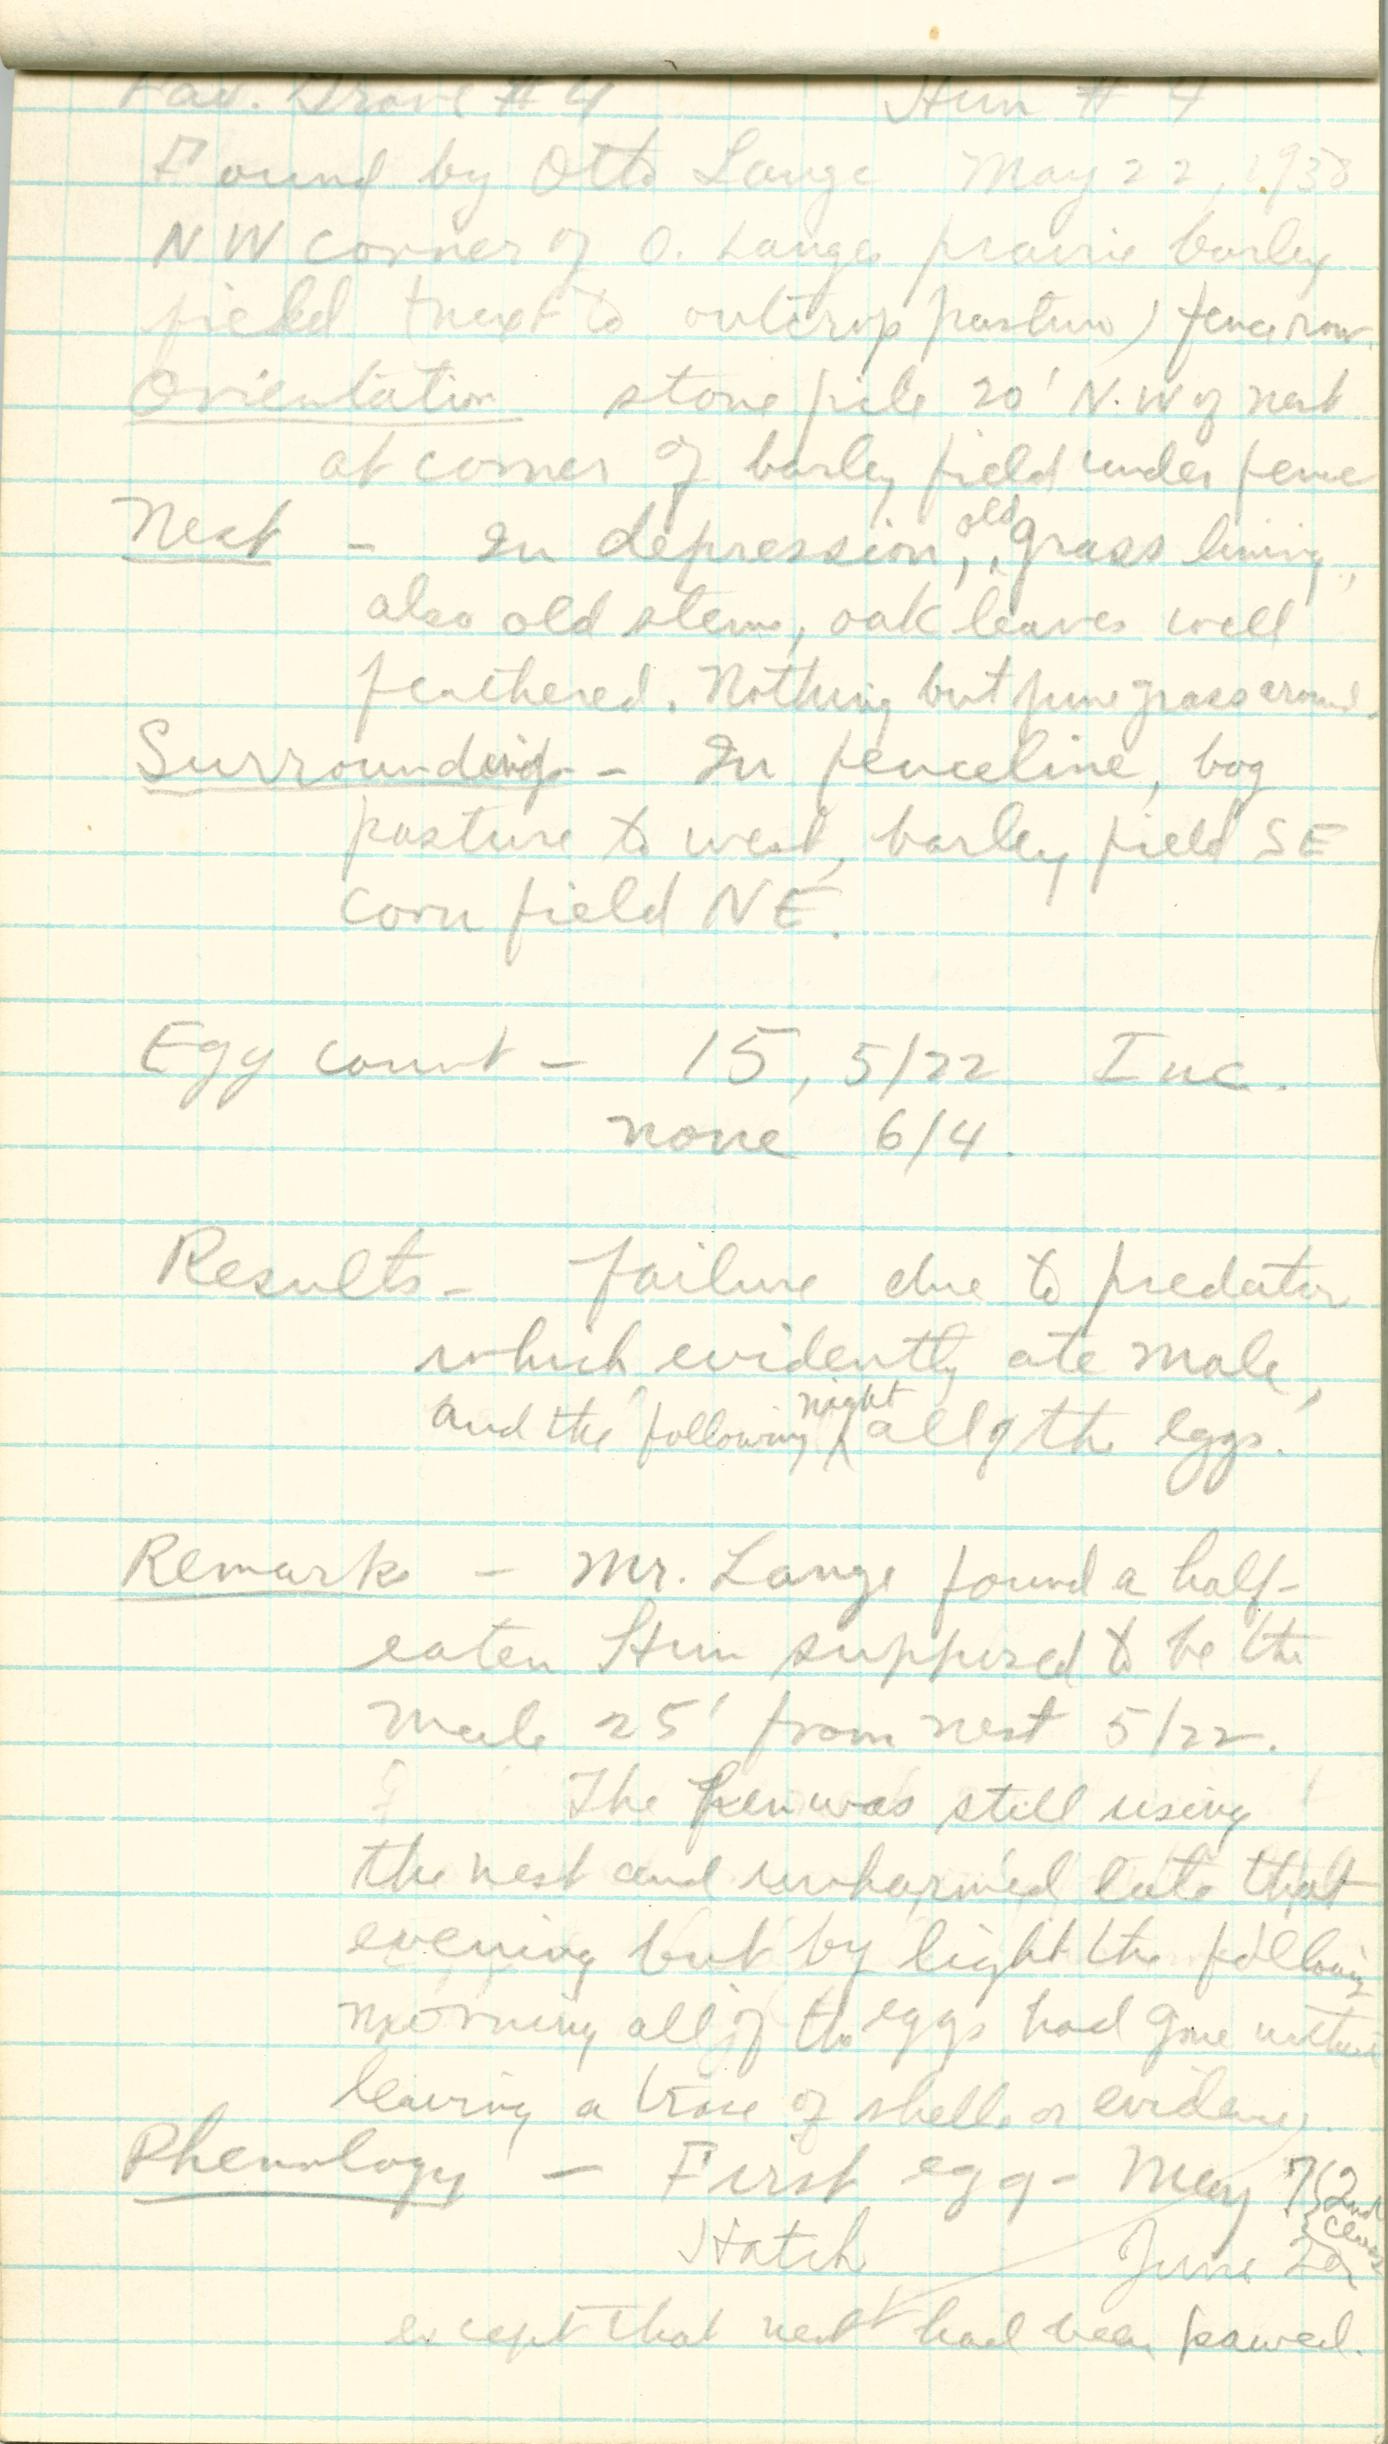 Fav. Grove #4 Hun # 4
Found by Otto Lange May 22, 1938
NW corner of O. Lange prairie barley
field (next to outcrop pasture) fencerow.
Orientation stone pile 20' N.W of nest
at corner of barley field under fence
Nest - In depression, old grass lining,
also old stems, oak leaves well
feathered. Nothing but june grass around.
Surroundings - In fenceline, bog
pasture to west, barley field SE
corn field NE.
Egg count - 15, 5/22 Inc.
none 6/4.
Results - failure due to predator
which evidently ate male,
and the following night all of the eggs.
Remarks - Mr. Lange found a half-
eaten Hun supposed to be the
male 25' from nest 5/22.
The hen was still using
the nest and unharmed late that
evening but by light the following
morning all of the eggs had gone without
leaving a trace of shells or evidence
Phenology - First egg - May 7 (2nd
Hatch June
except that nest had been pawed.